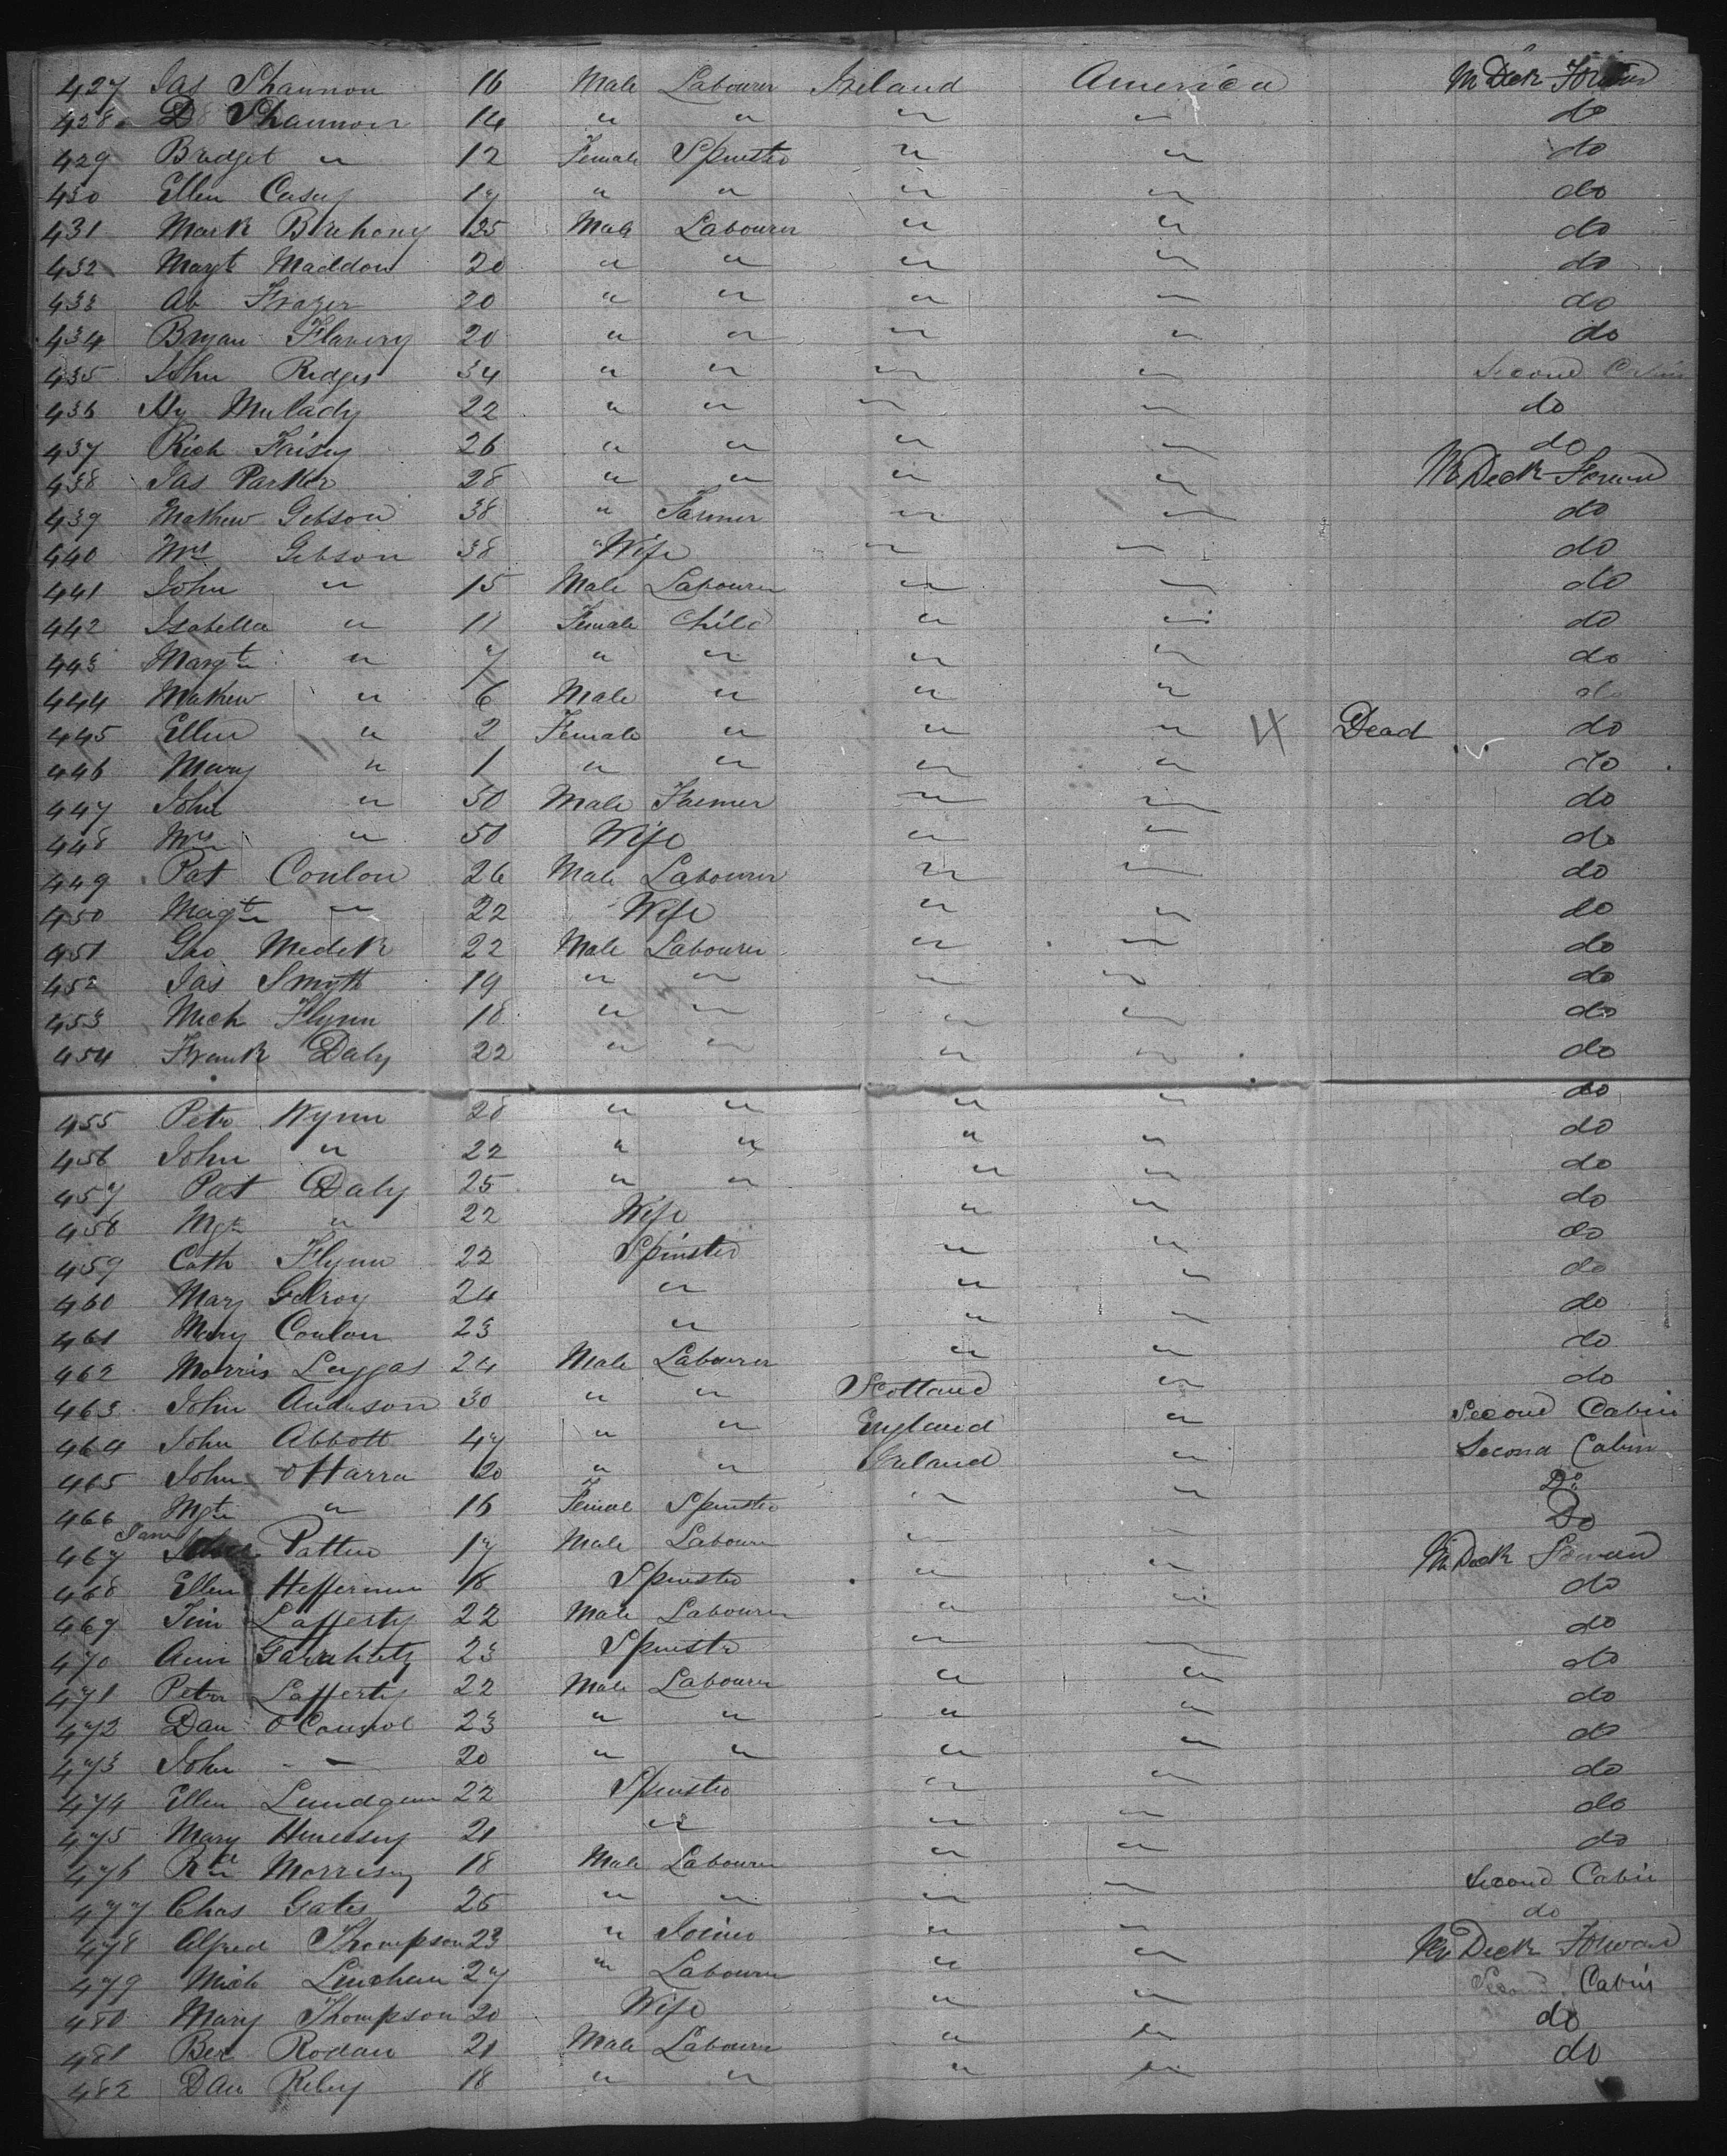 427 Jas Shannon 16 Male Labourer Ireland America M Deck Forward
428 D Shannon 14 " " " " do
429 Bridget " 12 Female Spinster " " do
430 Ellen Casey 17 " " " " do
431 Mark Brehony 25 Male Labourer " " do
432 Margt Maddon 20 " " " " do
433 Ab Frazer 20 " " " " do
434 Bryan Flavery 20 " " " " do
435 John Ridges 34 " " " " Second Cabin
436 Hy Mulady 22 " " " " do
437 Rich Faisey 26 " " " " do
438 Jas Parker 28 " " " " M Deck Forward
439 Mathew Gibson 38 " Farmer " " do
440 Mrs Gibson 38 " Wife " " do
441 John " 15 Male Labourer " " do
442 Isabella " 11 Female Child " " do
443 Margt " 7 " " " " do
444 Mathew " 6 Male " " " do
445 Ellen " 2 Female " " " Dead do
446 Mary " 1 " " " " do
447 John " 50 Male Farmer " " do
448 Mrs " 50 Wife " " do
449 Pat Conlon 26 Male Labourer " " do
450 Magt " 22 Wife " " do
451 Geo Medek 22 Male Labourer " " do
452 Jas Smyth 19 " " " " do
453 Mich Flynn 18 " " " " do
454 Frank Daly 22 " " " " do
455 Petr Wynn 28 " " " " do
456 John " 22 " " " " do
457 Pat Daly 25 " " " " do
458 Mgt " 22 Wife " " do
459 Cath Flynn 22 Spinster " " do
460 Mary Gilroy 24 " " " do
461 Mary Conlon 23 " " " do
462 Morris Leggas 24 Male Labourer " " do
463 John Anderson 30 " " Scotland " do
464 John Abbott 47 " " England " Second Cabin
465 John O'Harra 20 " " Ireland " Second Cabin
466 Mgt " 16 Female Spinster " " Do
467 Jane Patten 17 Male Labourer " " Do
468 Ellen Heffernan 18 Spinster " " M Deck Forward
469 Jim Lafferty 22 Male Labourer " " do
470 Ann Garahity 23 Spinster " " do
471 Peter Lafferty 22 Male Labourer " " do
472 Dan O'Connol 23 " " " " do
473 John - - 20 " " " " do
474 Ellen Lundgun 22 Spinster " " do
475 Mary Henessey 21 " " " do
476 Rd Morrisey 18 Male Labourer " " do
477 Chas Gates 25 " " " " Second Cabin
478 Alfred Thompson 23 " " " do
479 Mich Linehan 27 " Labourer " " M Deck Forward
480 Mary Thompson 20 Wife " " Second Cabin
481 Ber Rodan 21 Male Labourer " " do
482 Dan Reley 18 " " " " do